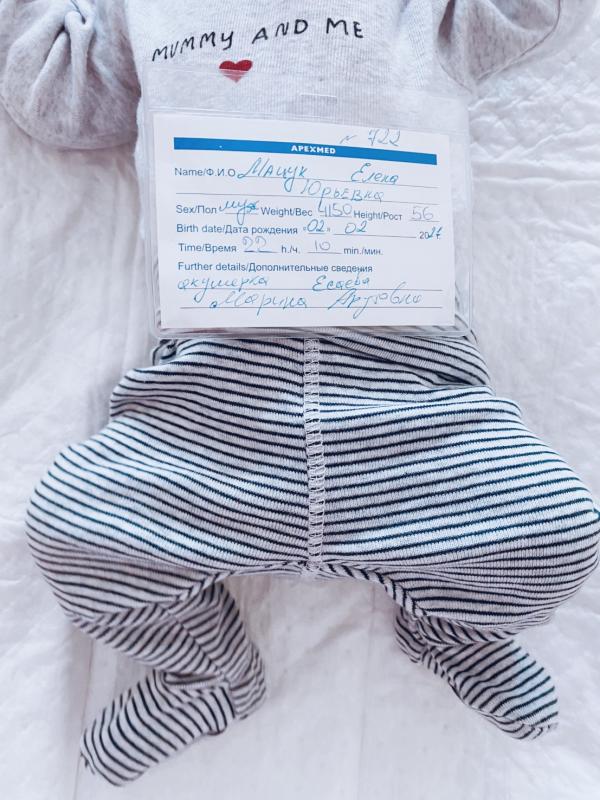 MUMMY AND ME
№ 722
APEXMED
Name/Ф.И.О Мацук Елена
Юрьевна
Sex/Пол муж Weight/Вес 4150 Height/Рост 56
Birth date/Дата рождения "02" 02 20
Time/Время 22 h./ч. 10 min./мин.
Further details/Дополнительные сведения
акушерка Есаева
Марина